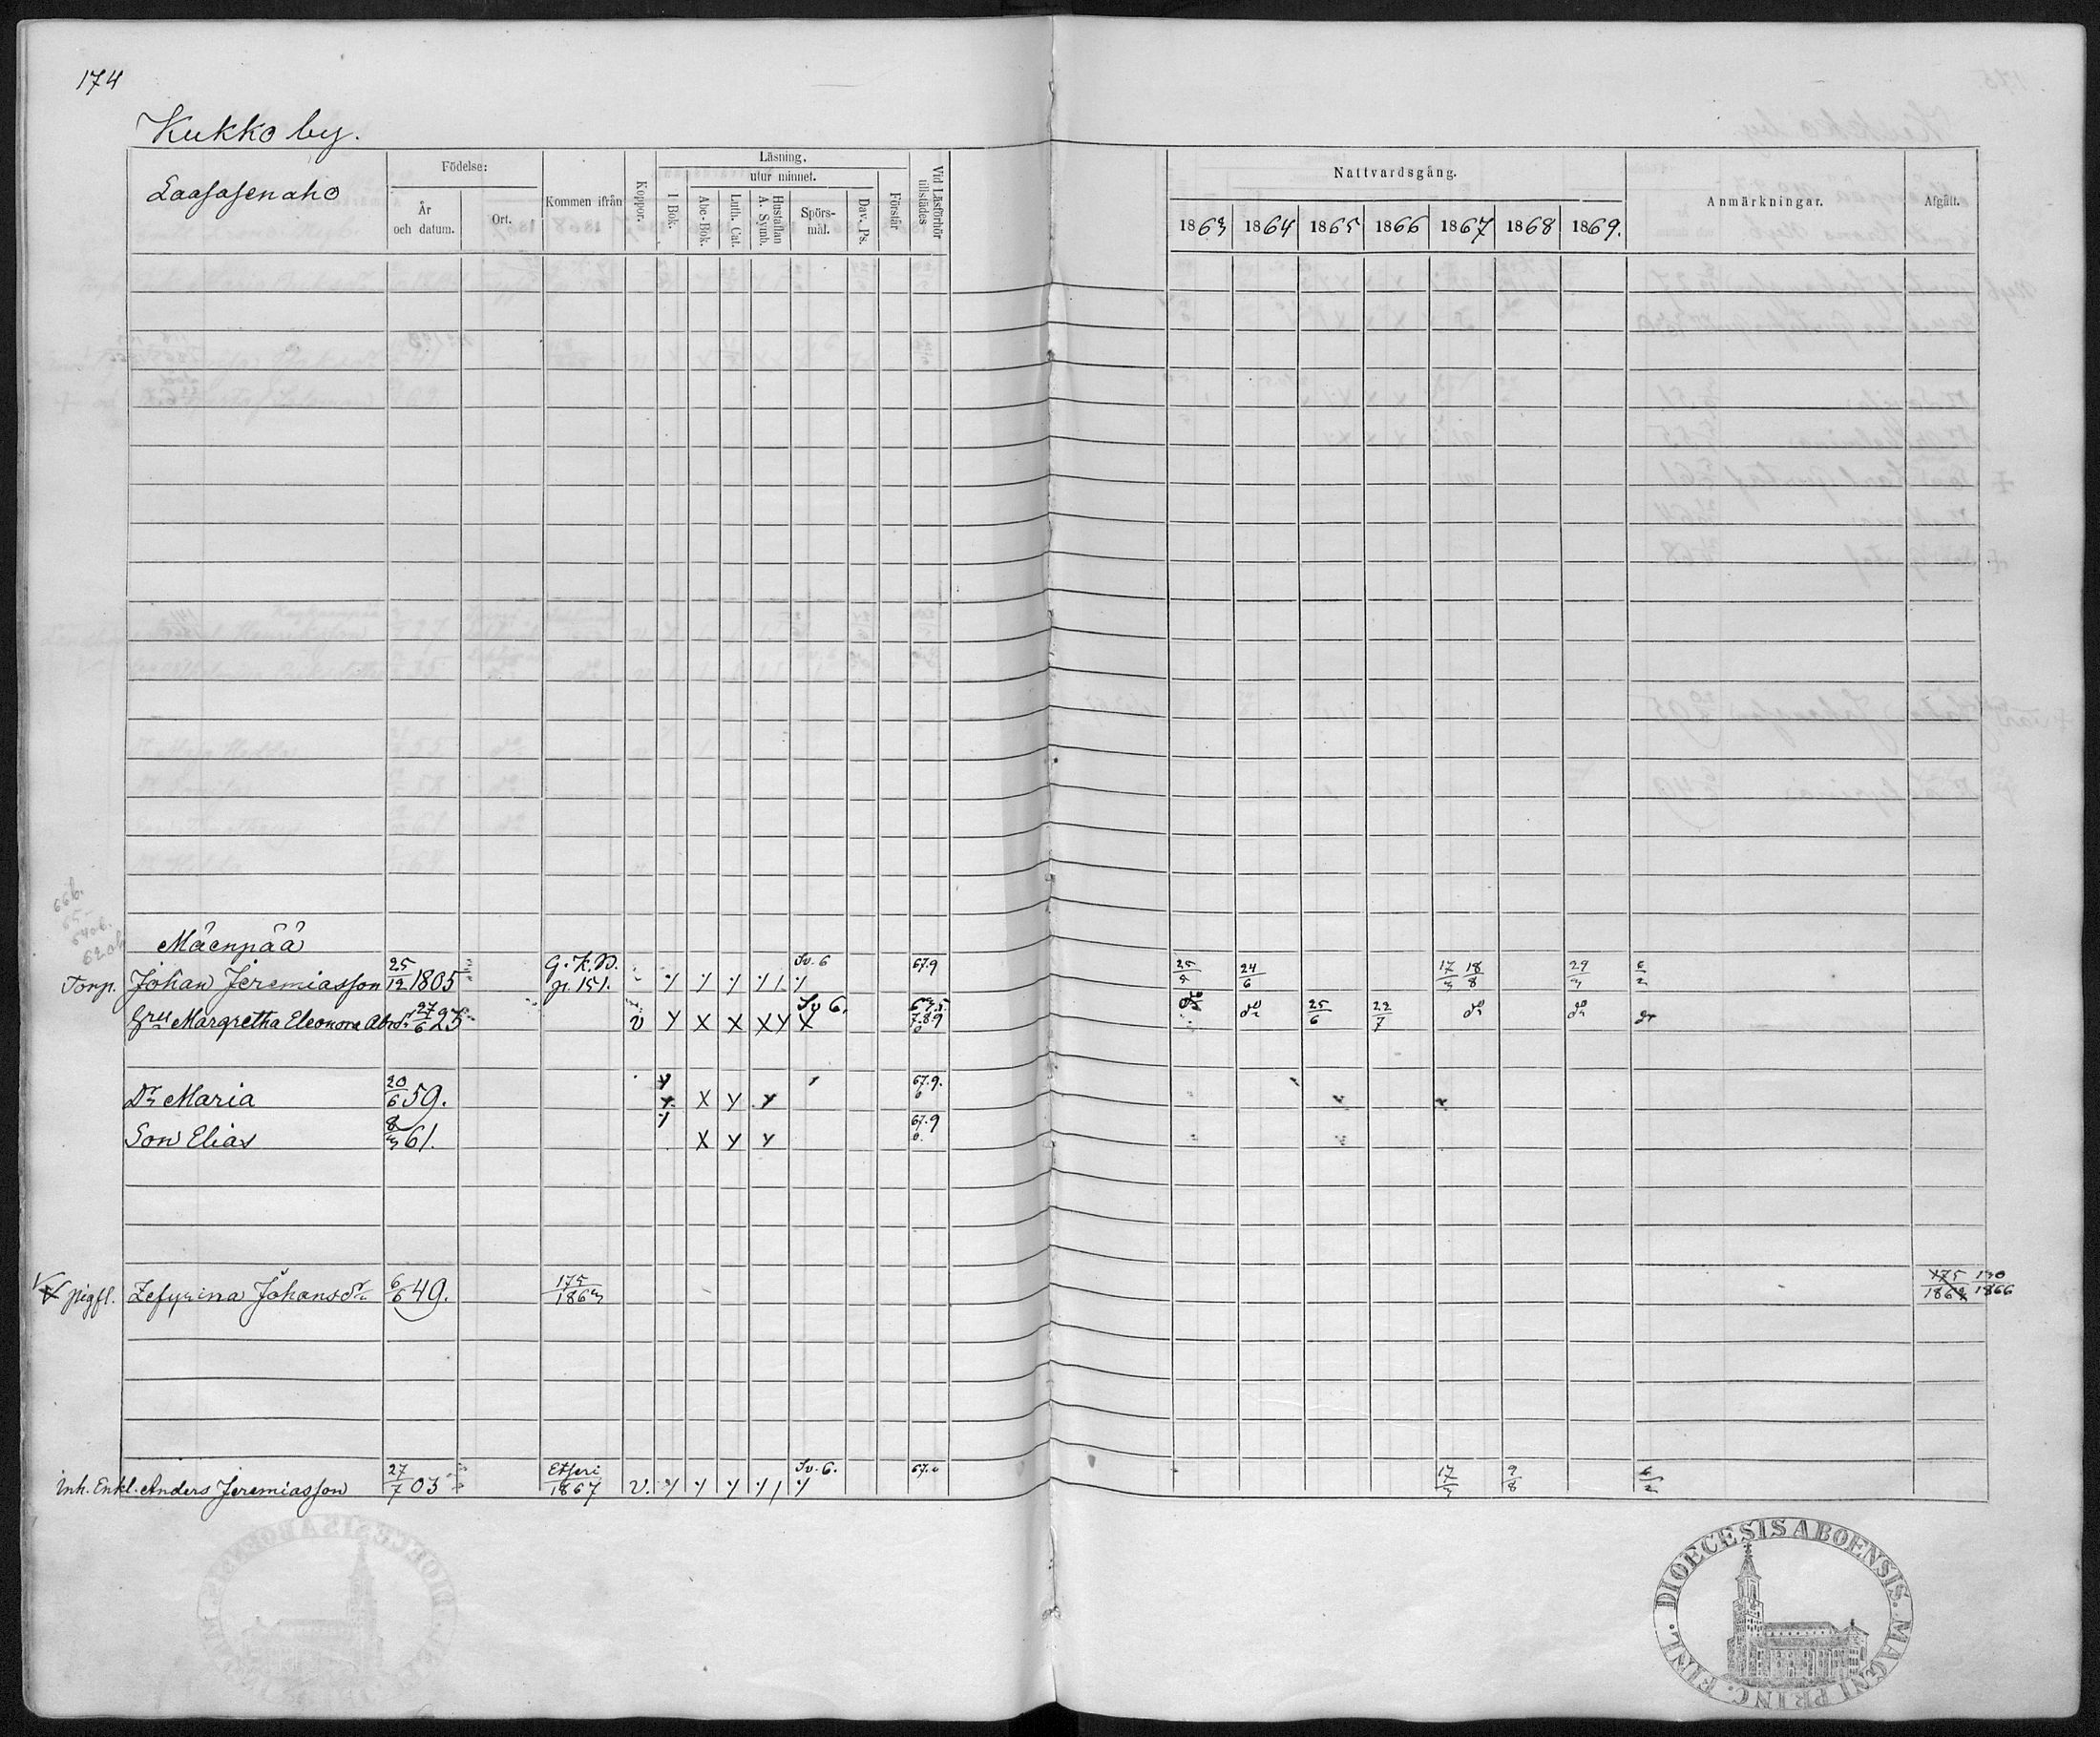 174
Kukko by.
Laasasenaho
Födelse:
År och datum.
Ort.
Kommen ifrån
Koppor.
Läsning.
I Bok.
utur minnet.
Abc-Bok.
Luth. Cat.
Hustaflan A. Symb.
Spörsmål.
Dav. Ps.
Förstår
Vid Läsförhör tillstädes
Nattvardsgång.
1863 1864 1865 1866 1867 1868 1869.
Anmärkningar.
Afgått.
Mäenpää
Torp. Johan Jeremiasson 25/12 1805 G.K.B. p. 151. Sv. 6 67.9 24/6 17/3 18/8 29/3 6/2
Hru Margretha Eleonora Abrs dr 27/6 25 v Y X X X Y X Sv 6. do 25/6 22/7 do do
Dr Maria 20/6 59. X Y Y 67.9.
Son Elias 8/3 61. X Y Y 67.9
pigfl. Zefyrina Johansdr 6/6 49. 175/1863 130/1866
Inh. Enkl. Anders Jeremiasson 27/7 03 Etseri/1867 v. Sv. 6. 17/3 9/8 6/2
DIOECESIS ABOENSIS. MAGNI PRINC. FINL.